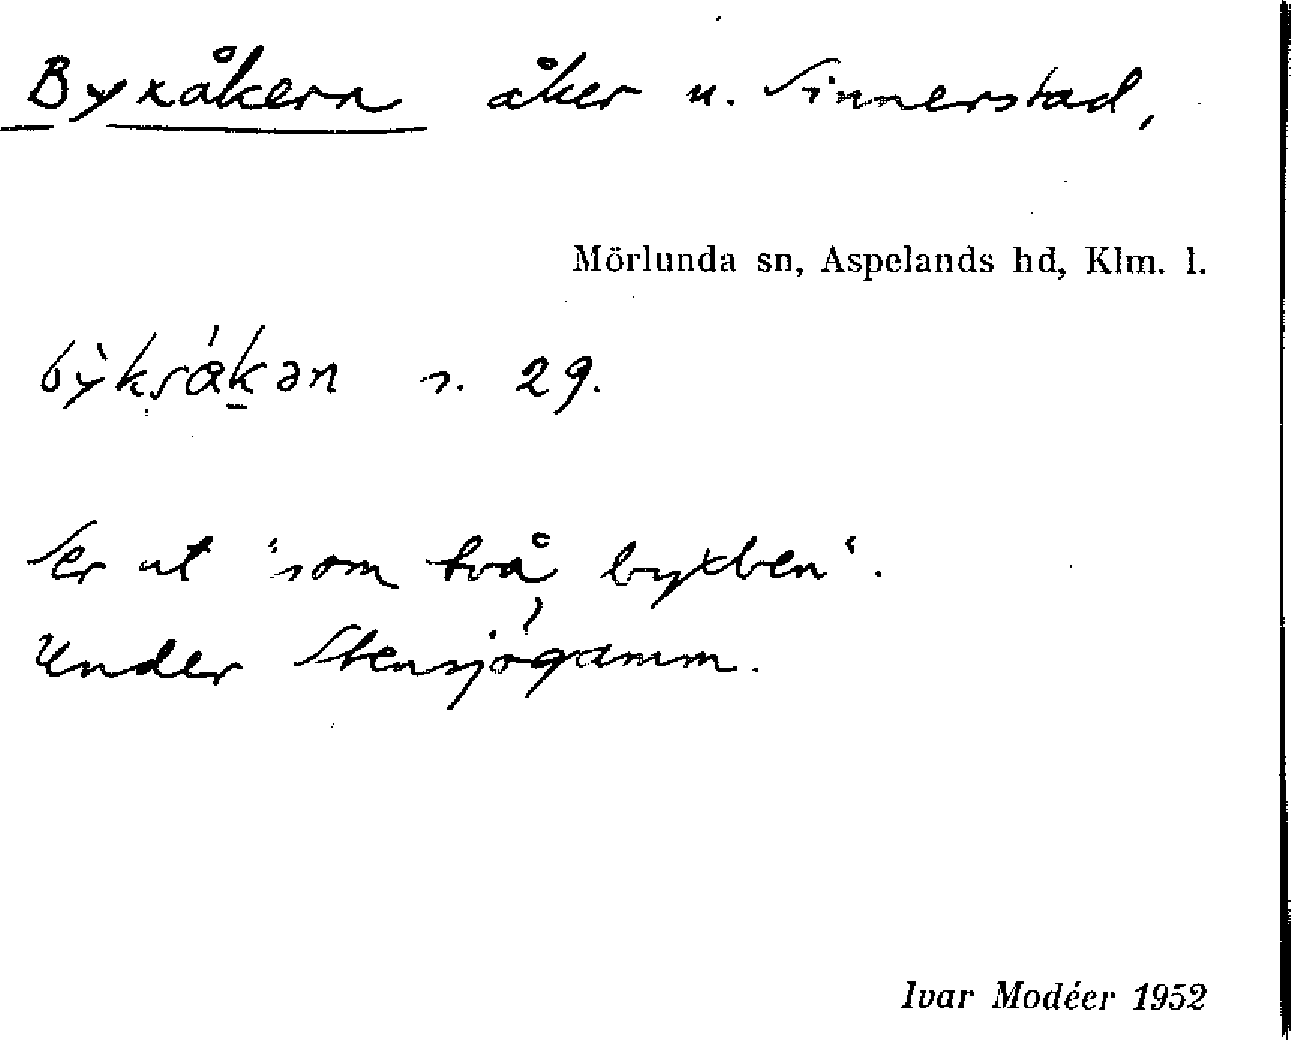 Byxåkern åker u. Sinnerstad,
Mörlunda sn, Aspelands hd, Klm. l.
bỳksákən s. 29.
Ser ut "som två byxben".
Under Stensjögamm.
Ivar Modéer 1952